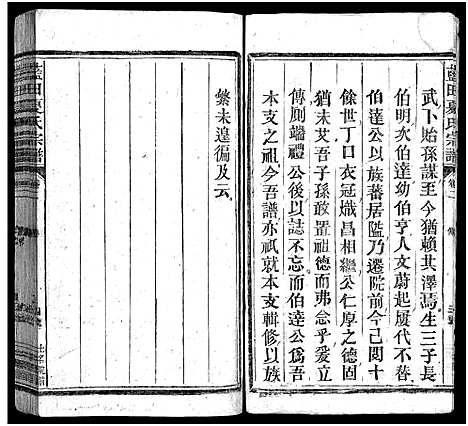 藍田夏氏宗譜
卷二
武卜貽孫謀至今猶賴其澤焉生三子長
伯明次伯達幼伯亨人文蔚起屢代不替
伯達公以族蕃居隘乃遷院前今已閱十
餘世丁口衣冠熾昌相繼公仁厚之德固
猶未艾吾子孫敢置祖德而弗念乎爰立
傳厠端禮公後以誌不忘而伯達公爲吾
本支之祖今吾譜亦祇就本支輯修以族
繁未遑徧及云
藍田夏氏宗譜